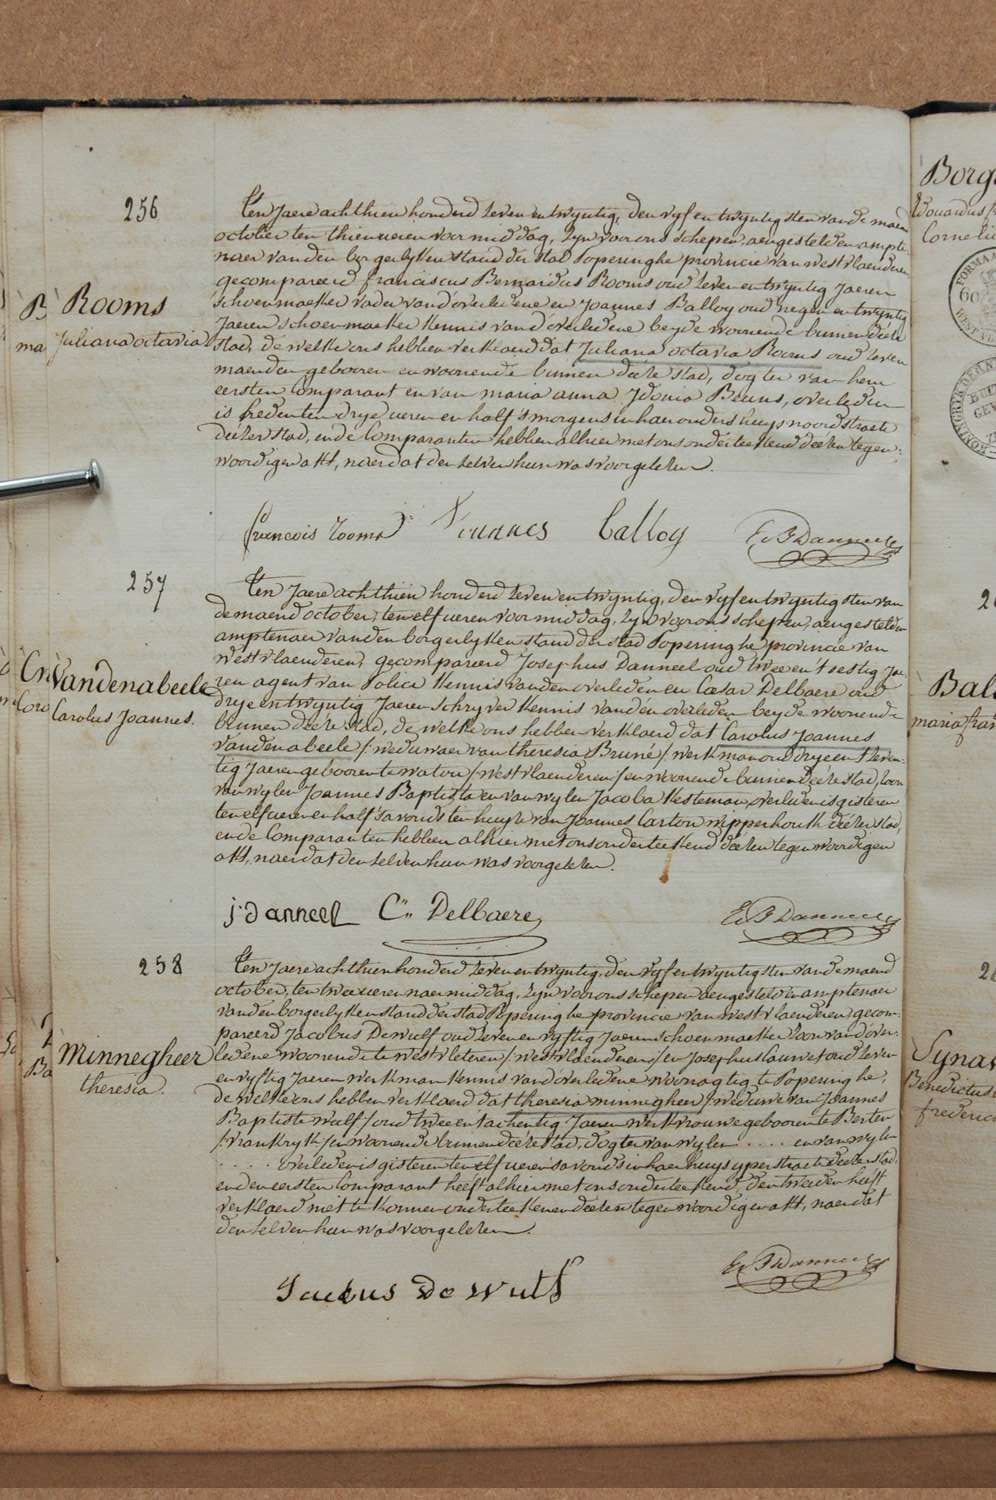 256
Rooms
Juliana octavia
Ten Jaere achthien honderd zeven en twyntig, den vyf en twyntigsten van de maend
october ten thien ueren voor middag, zyn voor ons schepen, aengestelden ampte-
naer van den borgerlyken stand der stad Poperinghe provincie van Westvlaenderen
gecompareerd franciscus Bernardus Rooms oud zeven en twyntig Jaeren
schoenmaeker vader van d'overledene en Joannes Balloy oud negen en twyntig
Jaeren schoenmaeker Kennis van d'overledene beyde woonende binnen deéze
stad, de welke ons hebben verklaerd dat Juliana octavia Rooms oud zeven
maenden gebooren en woonende binnen deéze stad, dogter van hem
eersten Comparant en van maria anna Idonia Beuns, overleden
is heden ten drye ueren en half s'morgens in haer ouders huys noordstraete
deézer stad, en de Comparanten hebben alhier met ons onderteekend deézen tegen-
woordigen akt, naer dat den zelven hun was voorgelezen.
francois rooms Joannes balloy E v P Danneel
257
Vandenabeele
Carolus Joannes.
Ten Jaere achthien honderd zeven en twyntig, den vyf en twyntigsten van
de maend october, ten elf ueren voor middag, zyn voor ons schepen, aengestelden
amptenaer van den borgerlyken stand der stad Poperinghe provincie van
Westvlaenderen, gecompareerd Josephus Danneel oud twee en t'sestig Jae-
ren agent van Police Kennis van den overleden en Cæsar Delbaere oud
drye en twyntig Jaeren schryver Kennis van den overleden beyde woonende
binnen deéze stad, de welke ons hebben verklaerd dat Carolus Joannes
Vandenabeele /weduwaer van theresia Bruné/ werkman oud drye en t'zeven-
tig Jaeren gebooren te watou /westvlaenderen/ en woonende binnen deéze stad, zoon
van wylen Joannes Baptista en van wylen Jacoba Kesteman, overleden is gisteren
ten elf ueren en half s'avonds ten huyse van Joannes Carton wipperhoutk deézer stad,
en de Comparanten hebben alhier met ons onderteekend deézen tegenwoordigen
akt, naer dat den zelven hun was voorgelezen.
j: danneel C.. Delbaere E v P Danneel
258
Minnegheer
theresia.
Ten Jaere achthien honderd zeven en twyntig, den vyf en twyntigsten van de maend
october, ten twee ueren naer middag, zyn voor ons schepen aengestelden amptenaer
van den borgerlyken stand der stad Poperinghe provincie van Westvlaenderen gecom-
pareerd Jacobus Dewulf oud zeven en vyftig Jaeren schoenmaeker zoon van d'over-
ledene woonende te westvleteren /westvlaenderen/ en Josephus Lauwet oud zeven
en vyftig Jaeren werkman Kennis van d'overledene woonagtig te Poperinghe,
de welke ons hebben verklaerd dat theresia minnegheer /weduwe van Joannes
Baptiste Wulf/ oud twee en tachentig Jaeren werkvrouwe gebooren te Berten
/vrankryk/ en woonende binnen deéze stad, dogter van wylen .... en van wylen
.... overleden is gisteren ten elf ueren s'avonds in haer huys yperstraete deézer stad,
en den eersten Comparant heeft alhier met ons onderteekend, den tweeden heeft
verklaerd niet te konnen onderteekenen deézen tegenwoordigen akt, naer dat
den zelven hun was voorgelezen.
Jacobus De Wulf E v P Danneel
Borg
Edouardus
Corneli
Bal
maria fran
Synae
Benedictus
frederic